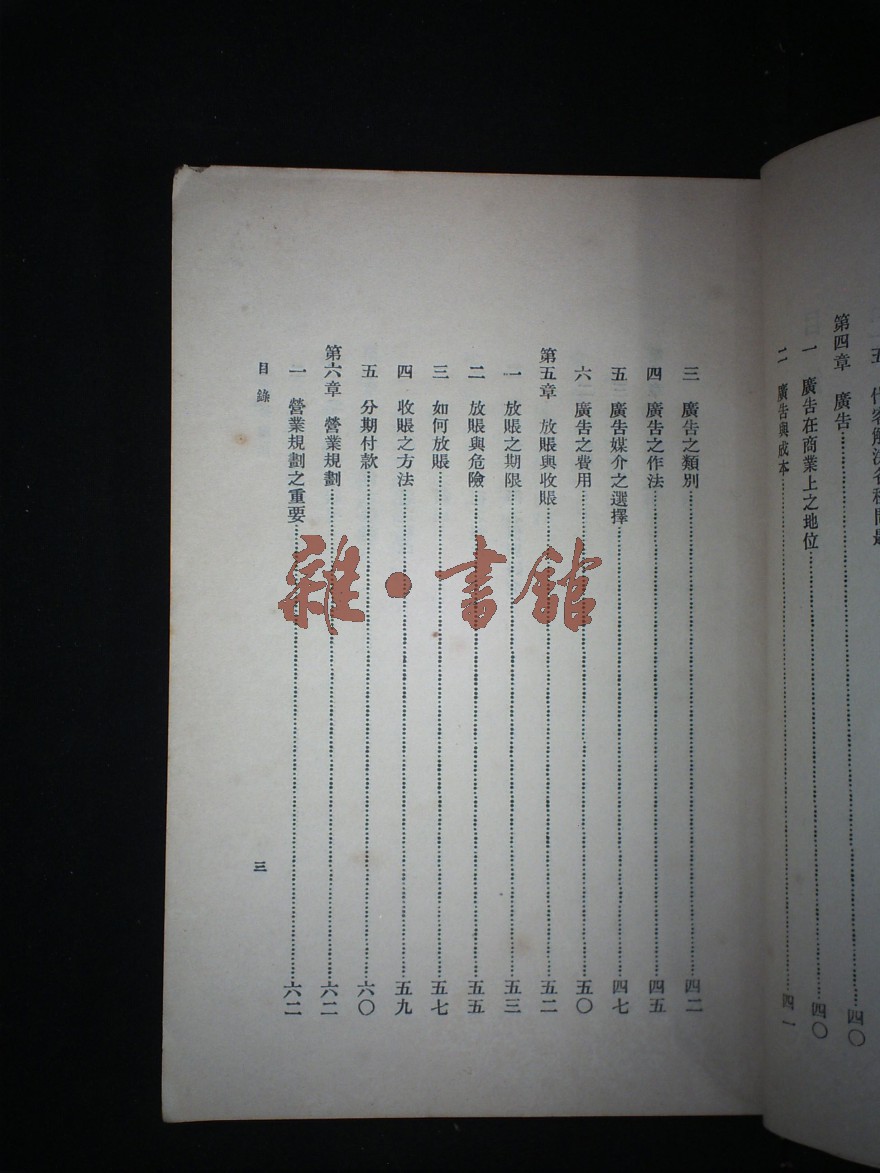 第四章 廣告……四〇
一 廣告在商業上之地位……四〇
二 廣告與成本……四一
三 廣告之類別……四二
四 廣告之作法……四五
五 廣告媒介之選擇……四七
六 廣告之費用……五〇
第五章 放賬與收賬……五二
一 放賬之期限……五三
二 放賬與危險……五五
三 如何放賬……五七
四 收賬之方法……五九
五 分期付款……六〇
第六章 營業規劃……六二
一 營業規劃之重要……六二
目錄 三
雜·書館